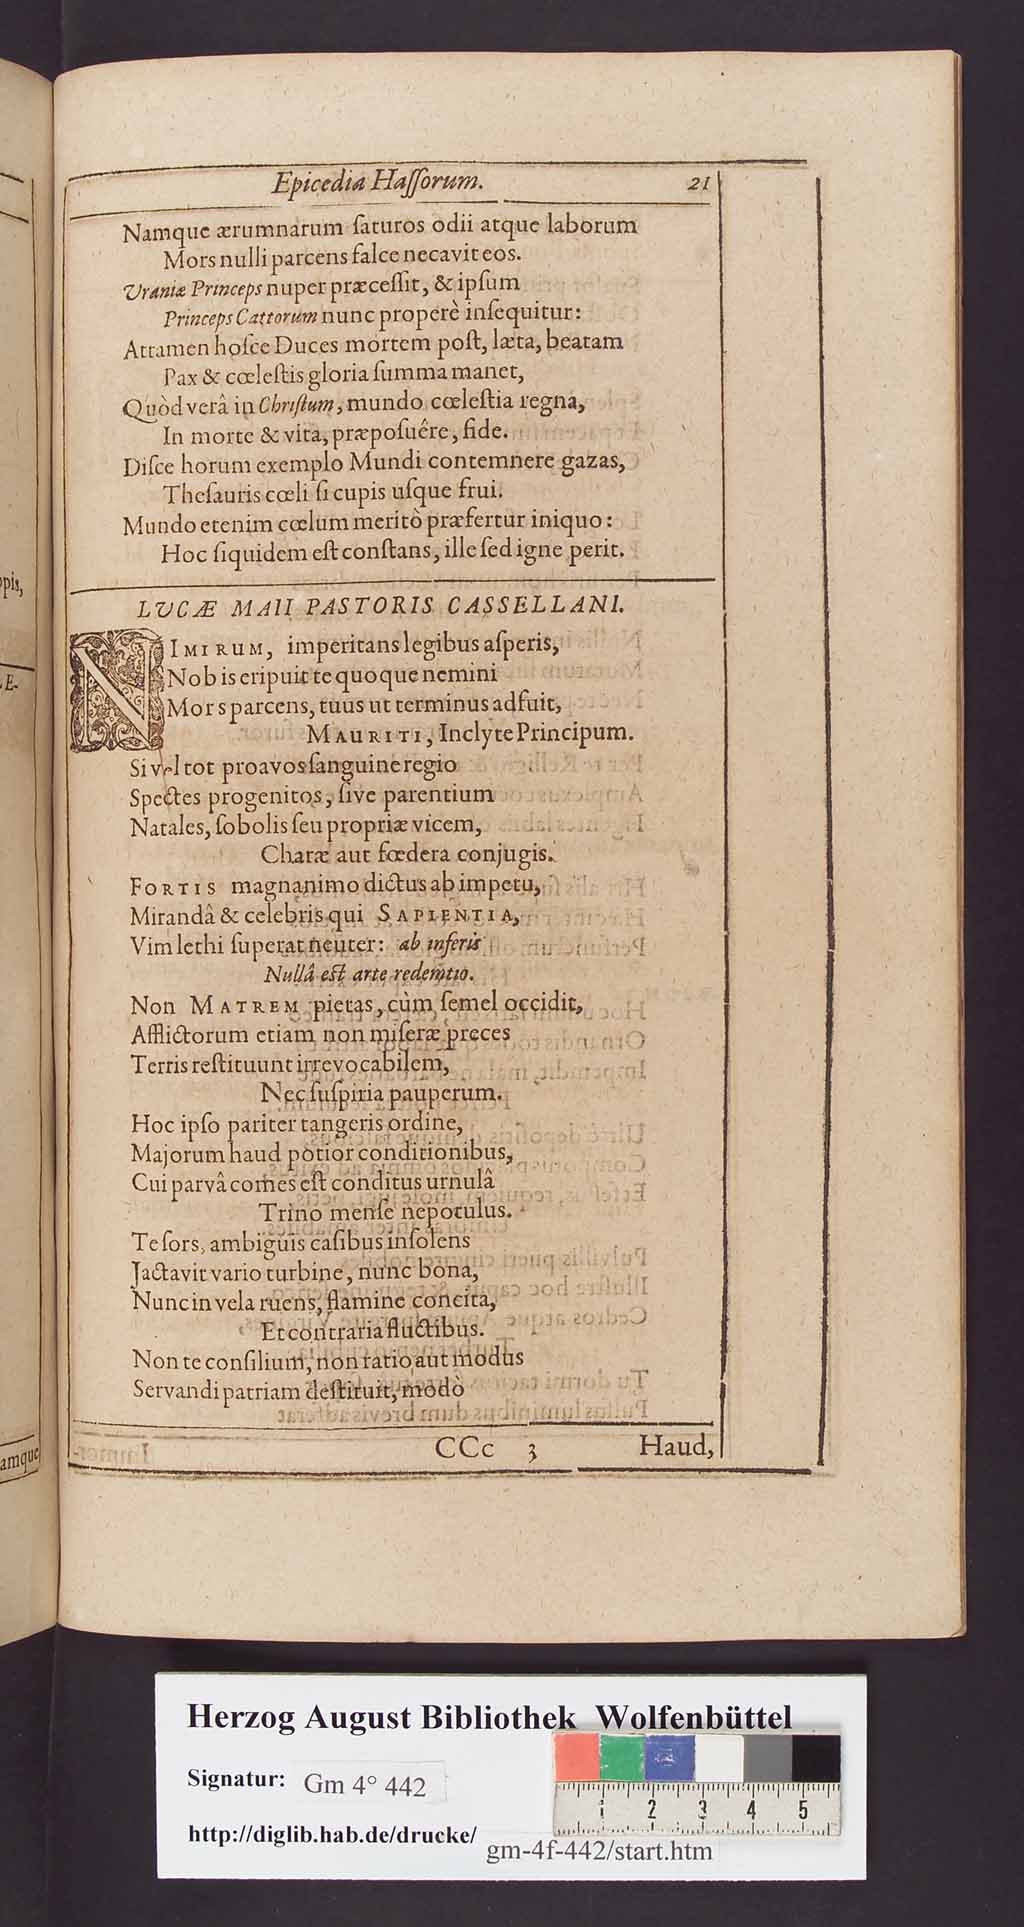 Epicedia Haſſorum. 21
Namque ærumnarum ſaturos odii atque laborum
Mors nulli parcens falce necavit eos.
Uraniæ Princeps nuper præceſſit, & ipſum
Princeps Cattorum nunc properè inſequitur:
Attamen hoſce Duces mortem poſt, læta, beatam
Pax & cœleſtis gloria ſumma manet,
Quòd verâ in Chriſtum, mundo cœleſtia regna,
In morte & vita, præpoſuêre, fide.
Diſce horum exemplo Mundi contemnere gazas,
Theſauris cœli ſi cupis uſque frui.
Mundo etenim cœlum meritò præfertur iniquo:
Hoc ſiquidem eſt conſtans, ille ſed igne perit.
LVCÆ MAII PASTORIS CASSELLANI.
NIMIRUM, imperitans legibus aſperis,
Nobis eripuit te quoque nemini
Mors parcens, tuus ut terminus adfuit,
MAURITI, Inclyte Principum.
Si vel tot proavos ſanguine regio
Spectes progenitos, ſive parentium
Natales, ſobolis ſeu propriæ vicem,
Charæ aut fœdera conjugis.
FORTIS magnanimo dictus ab impetu,
Mirandâ & celebris qui SAPIENTIA,
Vim lethi ſuperat neuter: ab inferis
Nullâ eſt arte redemtio.
Non MATREM pietas, cùm ſemel occidit,
Afflictorum etiam non miſeræ preces
Terris reſtituunt irrevocabilem,
Nec ſuſpiria pauperum.
Hoc ipſo pariter tangeris ordine,
Majorum haud potior conditionibus,
Cui parvâ comes eſt conditus urnulâ
Trino menſe nepotulus.
Te ſors, ambiguis caſibus inſolens
Jactavit vario turbine, nunc bona,
Nunc in vela ruens, flamine concita,
Et contraria fluctibus.
Non te conſilium, non ratio aut modus
Servandi patriam deſtituit, modò
CCc 3 Haud,
opis,
LE-
amque
Herzog August Bibliothek Wolfenbüttel
Signatur: Gm 4° 442
http://diglib.hab.de/drucke/ gm-4f-442/start.htm
1 2 3 4 5